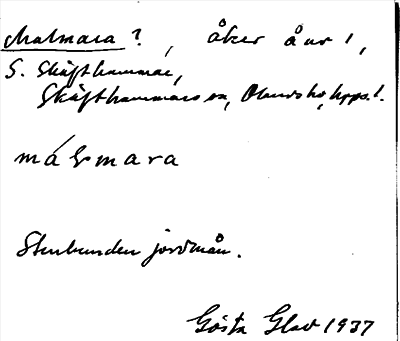 Malmara?, åker å nr 1,
S. Skäfthammar,
Skäfthammars sn, Olands hd, Upps. l.
málmara
Stenbunden jordmån.
Gösta Glad 1937